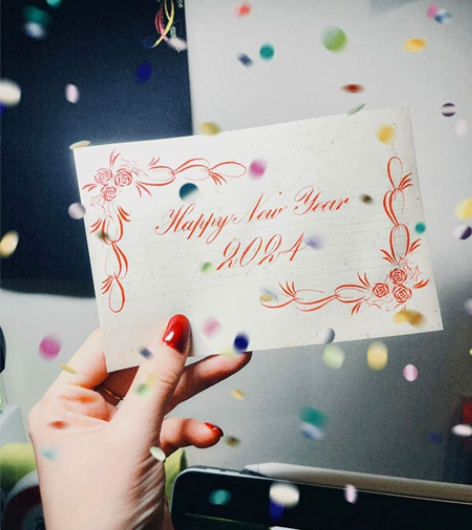 Happy New Year
2024